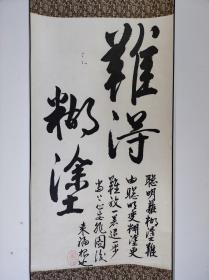 難得
糊塗
聰明難糊塗難
由聰明變糊塗更
難放一着退一步
當下心安非圖後
来福報也